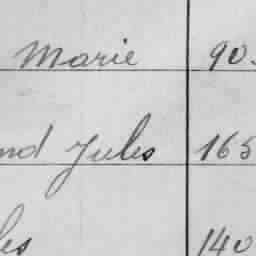 Marie 90.
nd Jules 165
les 140